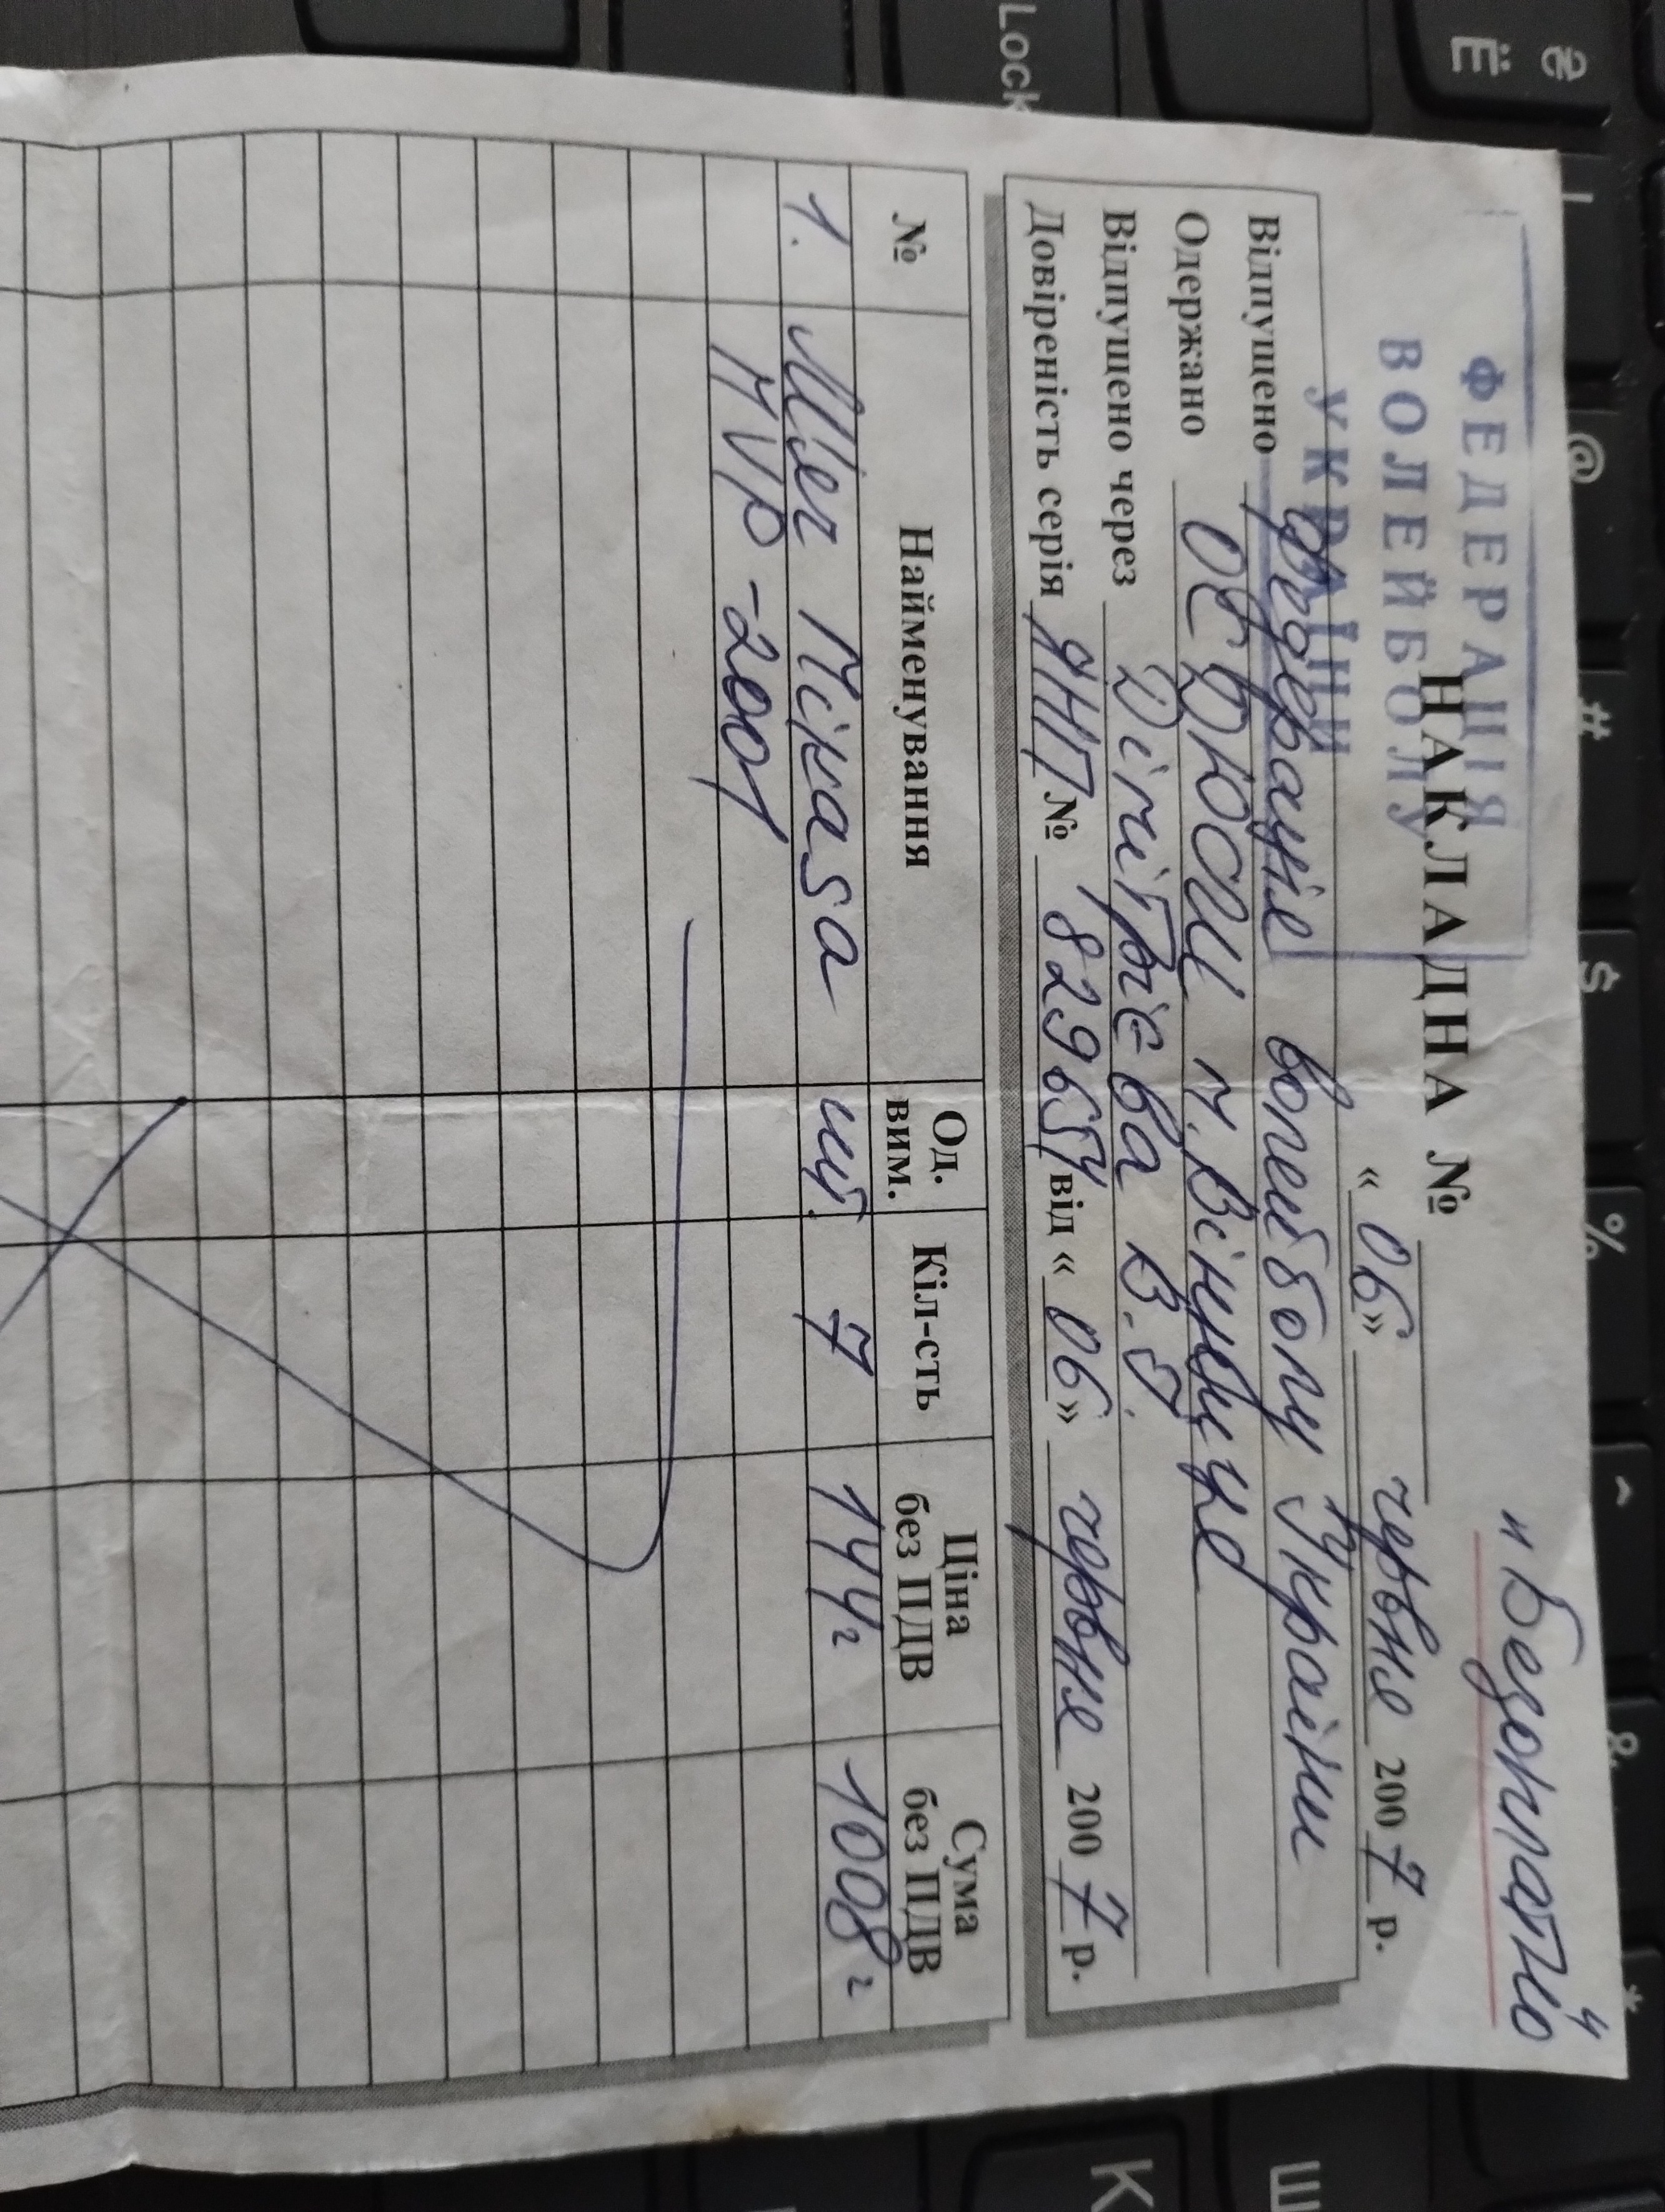 "Безоплатно"
ФЕДЕРАЦІЯ
ВОЛЕЙБОЛУ
УКРАЇНИ
НАКЛАДНА №
« 06 » червня 2007 р.
Відпущено Федерація волейболу України
Одержано ОСДЮСШ м. Вінниця
Відпущено через Дігтярєва В.
Довіреність серія ЯНГ № 829654 від « 06 » червня 2007 р.
№ Найменування Од. вим. Кіл-сть Ціна без ПДВ Сума без ПДВ
1. М'яч Мікаsа шт. 7 144 1008
MVP-2001
Lock
Ё
@
#
$
%
^
&
*
К
Ш